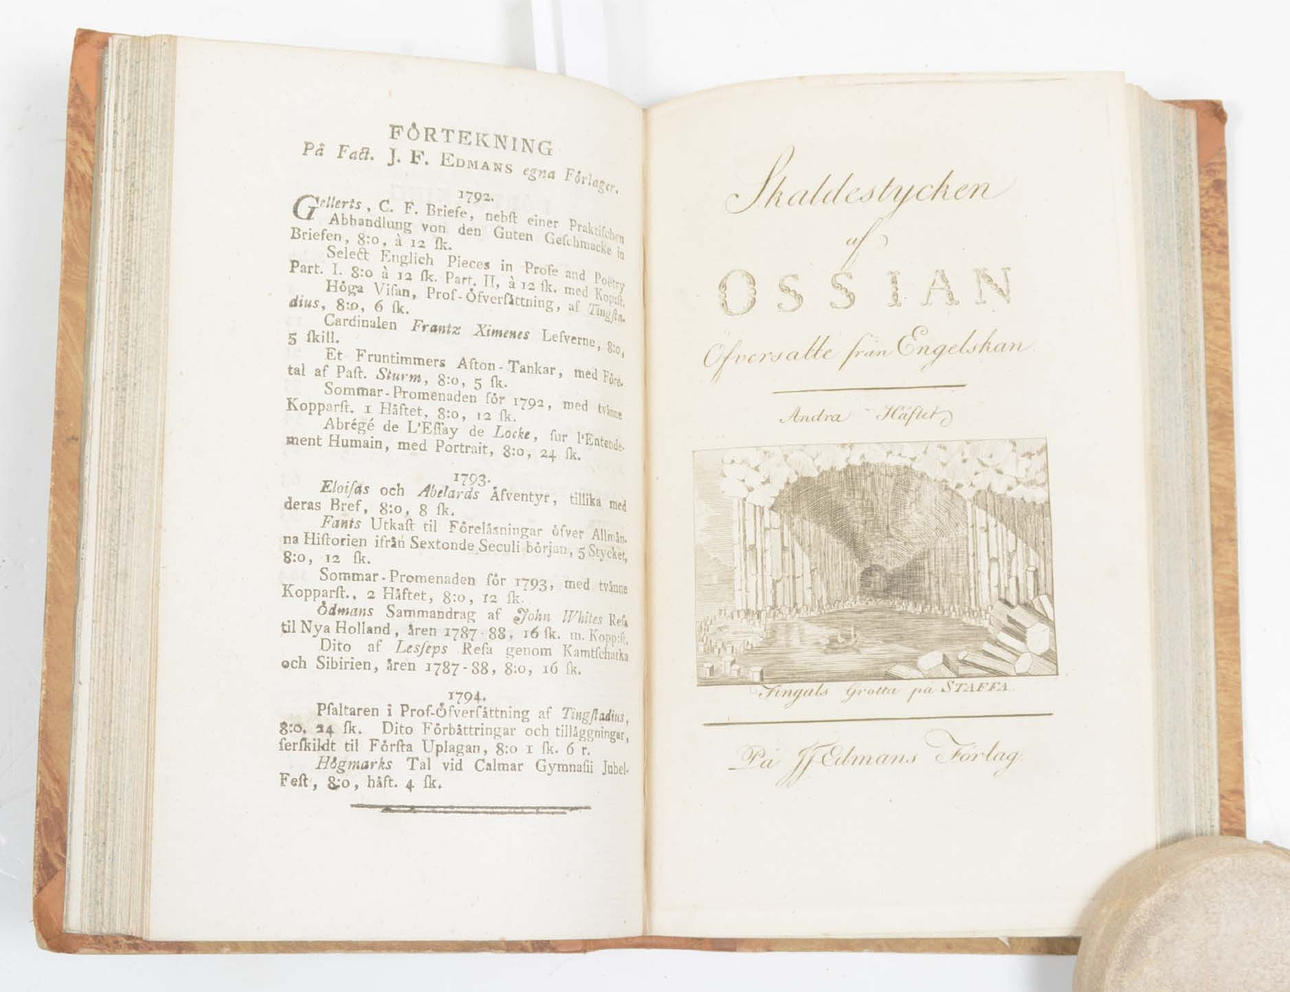 FÖRTEKNING
På Fact. J. F. EDMANS egna Förlager.
1792.
Gellerts, C. F. Briefe, nebſt einer Praktiſchen
Abhandlung von den Guten Geſchmacke in
Briefen, 8:o, à 12 ſk.
Select Engliſh Pieces in Proſe and Poëtry
Part. I. 8:o à 12 ſk. Part. II, à 12 ſk. med Kopſt.
Höga Viſan, Prof-Öfverſåttning, af Tingſta-
dius, 8:o, 6 ſk.
Cardinalen Frantz Ximenes Lefverne, 8:o,
5 ſkill.
Et Fruntimmers Afton-Tankar, med Före-
tal af Paſt. Sturm, 8:o, 5 ſk.
Sommar-Promenaden för 1792, med tvänne
Kopparſt. 1 Håftet, 8:o, 12 ſk.
Abrégé de L'Eſſay de Locke, ſur l'Entende-
ment Humain, med Portrait, 8:o, 24 ſk.
1793.
Eloiſas och Abelards Äfventyr, tillika med
deras Bref, 8:o, 8 ſk.
Fants Utkaſt til Föreläsningar öfver Allmän-
na Hiſtorien ifrån Sextonde Seculi början, 5 Stycket,
8:o, 12 ſk.
Sommar-Promenaden för 1793, med tvänne
Kopparſt., 2 Håftet, 8:o, 12 ſk.
Ödmans Sammandrag af John Whites Reſa
til Nya Holland, åren 1787-88, 16 ſk. m. Kopp:ſt.
Dito af Leſſeps Reſa genom Kamtſchatka
och Sibirien, åren 1787-88, 8:o, 16 ſk.
1794.
Pſaltaren i Prof-Öfverſåttning af Tingſtadius,
8:o, 24 ſk. Dito Förbåttringar och tillåggningar,
ſerſkildt til Förſta Uplagan, 8:o 1 ſk. 6 r.
Högmarks Tal vid Calmar Gymnaſii Jubel-
Feſt, 8:o, håft. 4 ſk.
Skaldestycken
af
OSSIAN
Öfversatte från Engelskan.
Andra Håftet
Fingals Grotta på STAFFA.
På JF Edmans Förlag.